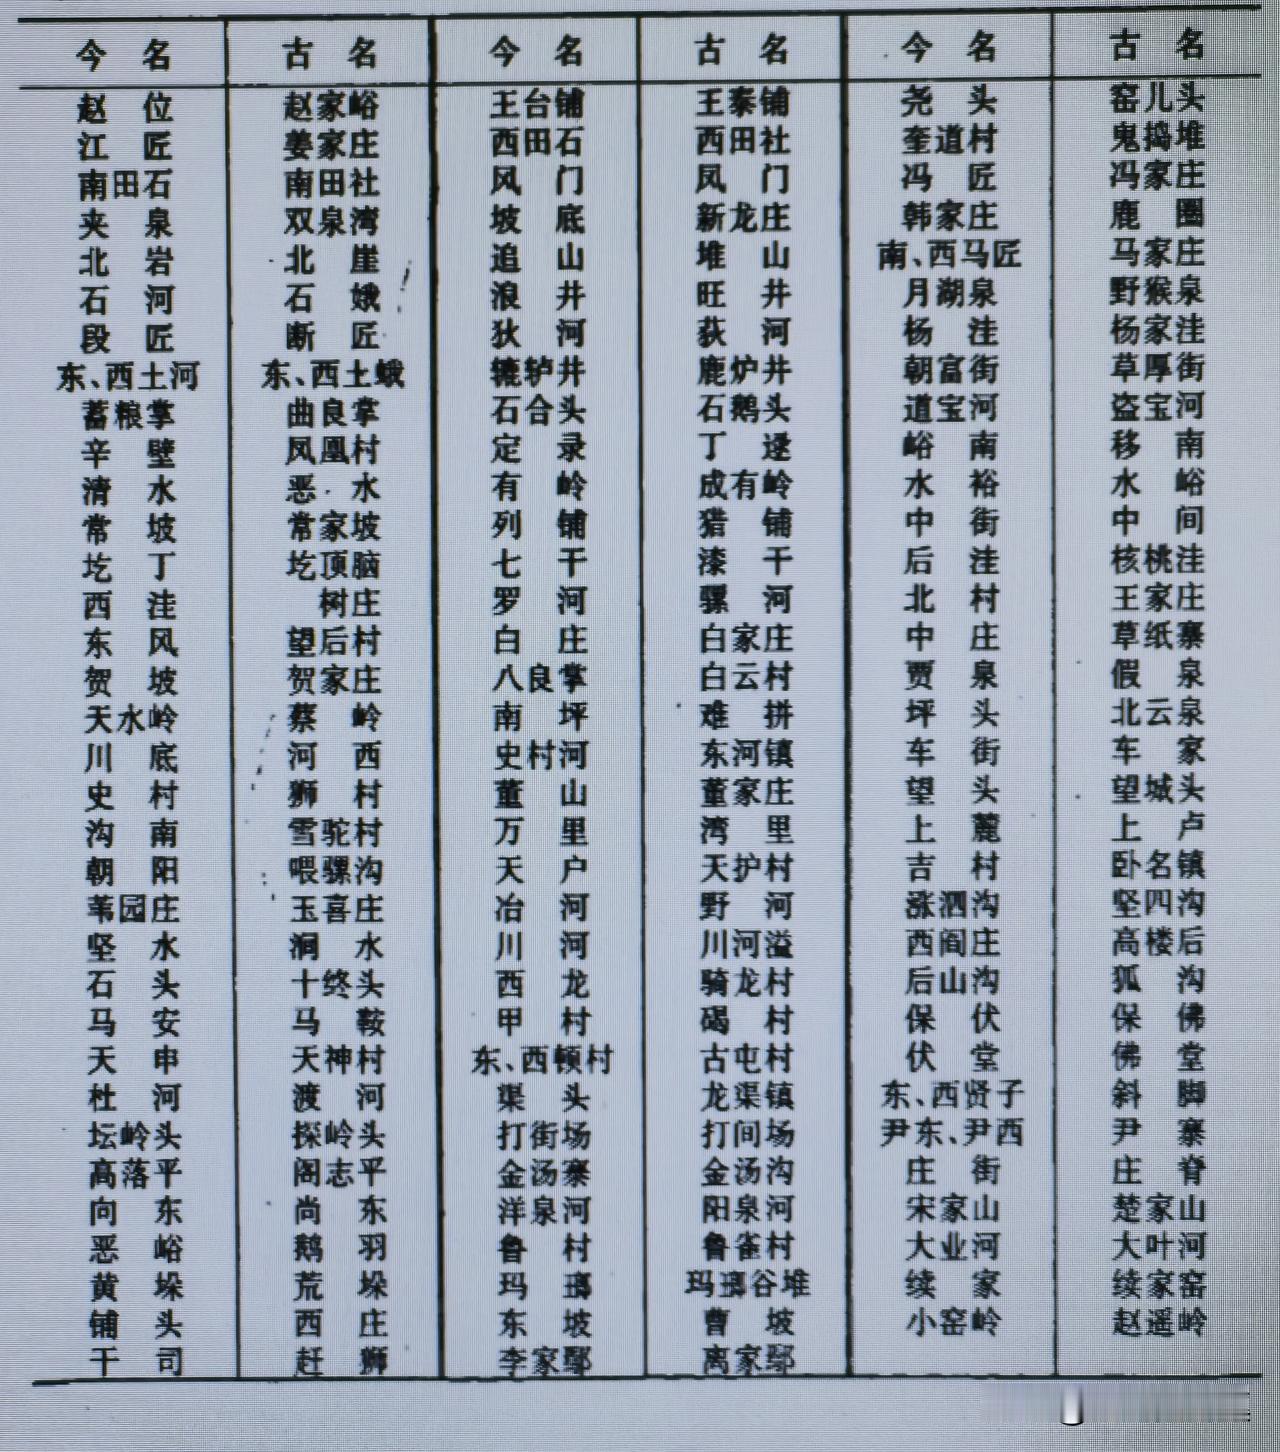 今名 古名 今名 古名 今名 古名
赵位 赵家峪 王台铺 王泰铺 尧头 窑儿头
江匠 姜家庄 西田石 西田社 奎道村 鬼捣堆
南田石 南田社 风门 凤门 冯匠 冯家庄
夹泉 双泉湾 坡底 新龙庄 韩家庄 鹿圈
北岩 北崖 追山 堆山 南、西马匠 马家庄
石河 石娥 浪井 旺井 月湖泉 野猴泉
段匠 断匠 狄河 荻河 杨洼 杨家洼
东、西土河 东、西土蛾 辘轳井 鹿炉井 朝富街 草厚街
蓄粮掌 曲良掌 石合头 石鹅头 道宝河 盗宝河
辛壁 凤凰村 定录 丁逯 峪南 移南
清水 恶水 有岭 成有岭 水裕 水峪
常坡 常家坡 列铺 猎铺 中街 中间
圪丁 圪顶脑 七干 漆干 后洼 核桃洼
西洼 树庄 罗河 骡河 北村 王家庄
东风 望后村 白庄 白家庄 中庄 草纸寨
贺坡 贺家庄 八良掌 白云村 贾泉 假泉
天水岭 蔡岭 南坪 难拼 坪头 北云泉
川底 河西 史村河 东河镇 车街 车家
史村 狮村 董山 董家庄 望头 望城头
沟南 雪驼村 万里 湾里 上麓 上卢
朝阳 喂骡沟 天户 天护村 吉村 卧名镇
苇园庄 玉喜庄 冶河 野河 涨泗沟 坚四沟
坚水 涧水 川河 川河溢 西阎庄 高楼后
石头 十终头 西龙 骑龙村 后山沟 狐沟
马安 马鞍 甲村 碣村 保伏 保佛
天申 天神村 东、西顿村 古屯村 伏堂 佛堂
杜河 渡河 渠头 龙渠镇 东、西贤子 斜脚
坛岭头 探岭头 打街场 打间场 尹东、尹西 尹寨
高落平 阁志平 金汤寨 金汤沟 庄街 庄脊
向东 尚东 洋泉河 阳泉河 宋家山 楚家山
恶峪 鹅羽 鲁村 鲁雀村 大业河 大叶河
黄垛 荒垛 玛琅 玛琅谷堆 续家 续家窑
铺头 西庄 东坡 曹坡 小窑岭 赵遥岭
干司 赶狮 李家鄢 离家鄢